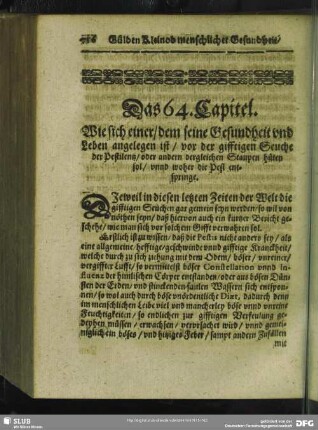 Gülden Kleinod menschlicher Gesundheit/
Das 64. Capitel.
Wie sich einer/ dem seine Gesundheit vnd
Leben angelegen ist/ vor der gifftigen Seuche
der Pestilenz/ oder andern dergleichen Staupen hüten
sol/ vnnd woher die Pest ent-
springe.
DJeweil in diesen letzten Zeiten der Welt die
gifftigen Seuchen gar gemein seyn werden/ so wil von
nöthen seyn/ daß hiervon auch ein kurtzer Bericht ge-
schehe/ wie man sich vor solchem Gifft verwahren sol.
Erstlich ist zu wissen/ daß die Pestis nicht anders sey/ als
eine allgemeine hefftige/ geschwinde vnnd gifftige Kranckheit/
welche durch zu sich ziehung mit dem Odem/ böser/ vnreiner/
vergiffter Lufft/ so vermittelst böser Constellation vnnd In-
fluentz der himlischen Cörper entstanden/ oder aus bösen Dün-
sten der Erden/ vnd stinckenden faulen Wassern sich entspon-
nen/ so wol auch durch böse vnordentliche Diæt, dadurch denn
im menschlichen Leibe viel vnd mancherley böse vnnd vnreine
Feuchtigkeiten/ so endlichen zur gifftigen Verfeulung ge-
deyhen müssen/ erwachsen/ verursachet wird/ vnnd gemei-
niglich ein böses/ vnd hitziges Feber/ sampt andern Zufällen
mit
SLUB
DFG